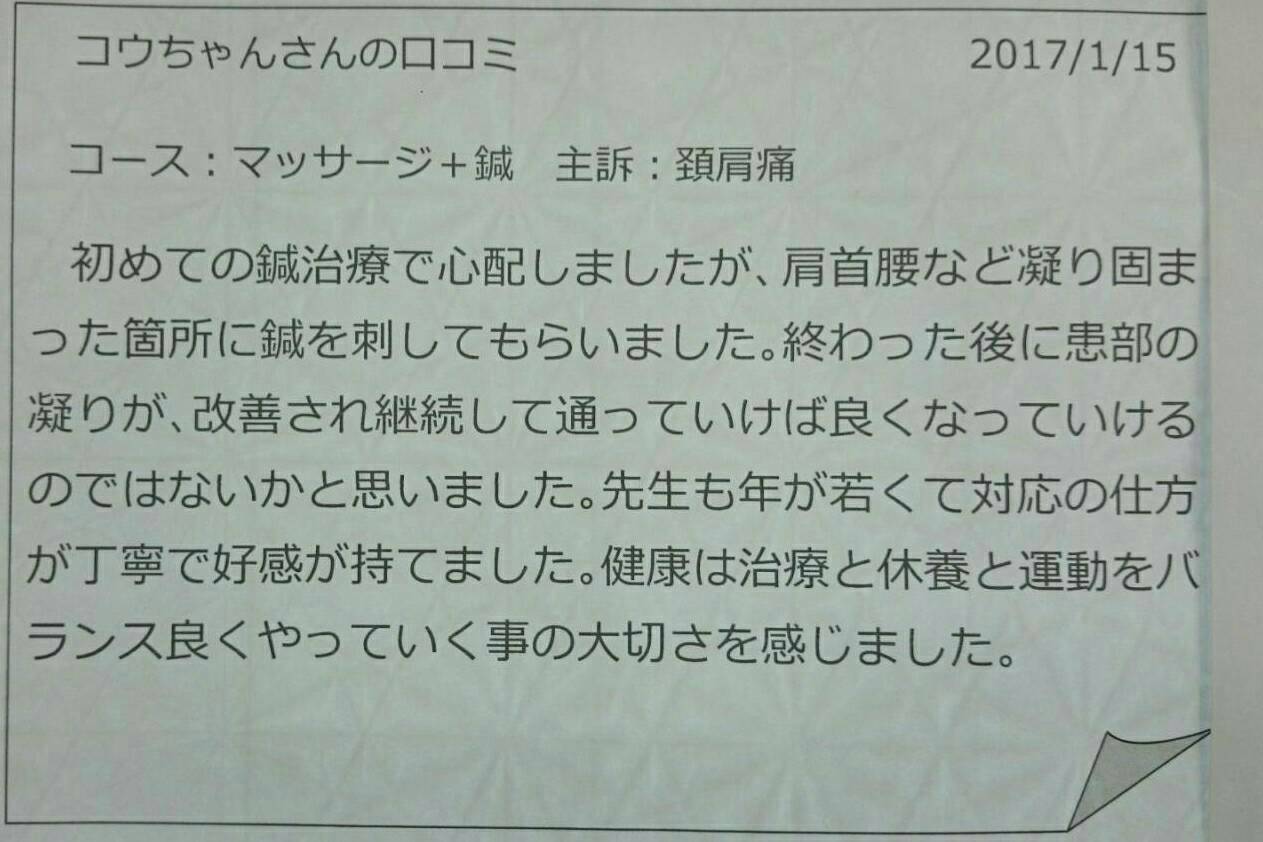 コウちゃんさんの口コミ 2017/1/15
コース：マッサージ＋鍼　主訴：頚肩痛
初めての鍼治療で心配しましたが、肩首腰など凝り固ま
った箇所に鍼を刺してもらいました。終わった後に患部の
凝りが、改善され継続して通っていけば良くなっていける
のではないかと思いました。先生も年が若くて対応の仕方
が丁寧で好感が持てました。健康は治療と休養と運動をバ
ランス良くやっていく事の大切さを感じました。